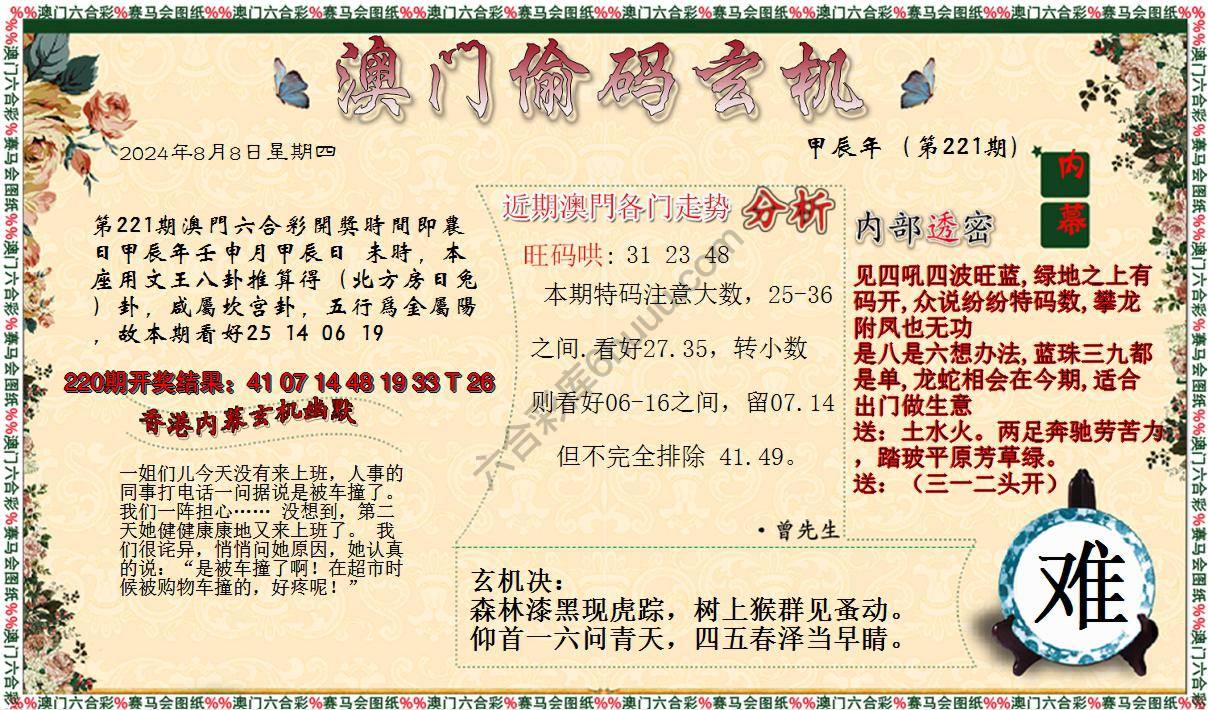 %%澳门六合彩%赛马会图纸%%澳门六合彩%赛马会图纸%%澳门六合彩%赛马会图纸%%澳门六合彩%赛马会图纸%%澳门六合彩%赛马会图纸%%澳门六合彩%赛马会图纸%%
澳门偷码玄机
2024年8月8日星期四
甲辰年（第221期）
内幕
第221期澳門六合彩開獎時間即農
日甲辰年壬申月甲辰日 未時，本
座用文王八卦推算得（北方房日兔
）卦，咸屬坎宫卦，五行爲金屬陽
，故本期看好25 14 06 19
220期开奖结果：41 07 14 48 19 33 T 26
香港内幕玄机幽默
一姐们儿今天没有来上班，人事的
同事打电话一问据说是被车撞了。
我们一阵担心…… 没想到，第二
天她健健康康地又来上班了。 我
们很诧异，悄悄问她原因，她认真
的说：“是被车撞了啊！在超市时
候被购物车撞的，好疼呢！”
近期澳門各门走势 分析
旺码哄: 31 23 48
本期特码注意大数，25-36
之间.看好27.35，转小数
则看好06-16之间，留07.14
但不完全排除 41.49。
·曾先生
内部透密
见四吼四波旺蓝,绿地之上有
码开,众说纷纷特码数,攀龙
附凤也无功
是八是六想办法,蓝珠三九都
是单,龙蛇相会在今期,适合
出门做生意
送：土水火。两足奔驰劳苦为
，踏玻平原芳草绿。
送：（三一二头开）
玄机决：
森林漆黑现虎踪，树上猴群见蚤动。
仰首一六问青天，四五春泽当早睛。
难
%%澳门六合彩%赛马会图纸%%澳门六合彩%赛马会图纸%%澳门六合彩%赛马会图纸%%澳门六合彩%赛马会图纸%%澳门六合彩%赛马会图纸%%澳门六合彩%赛马会图纸%%